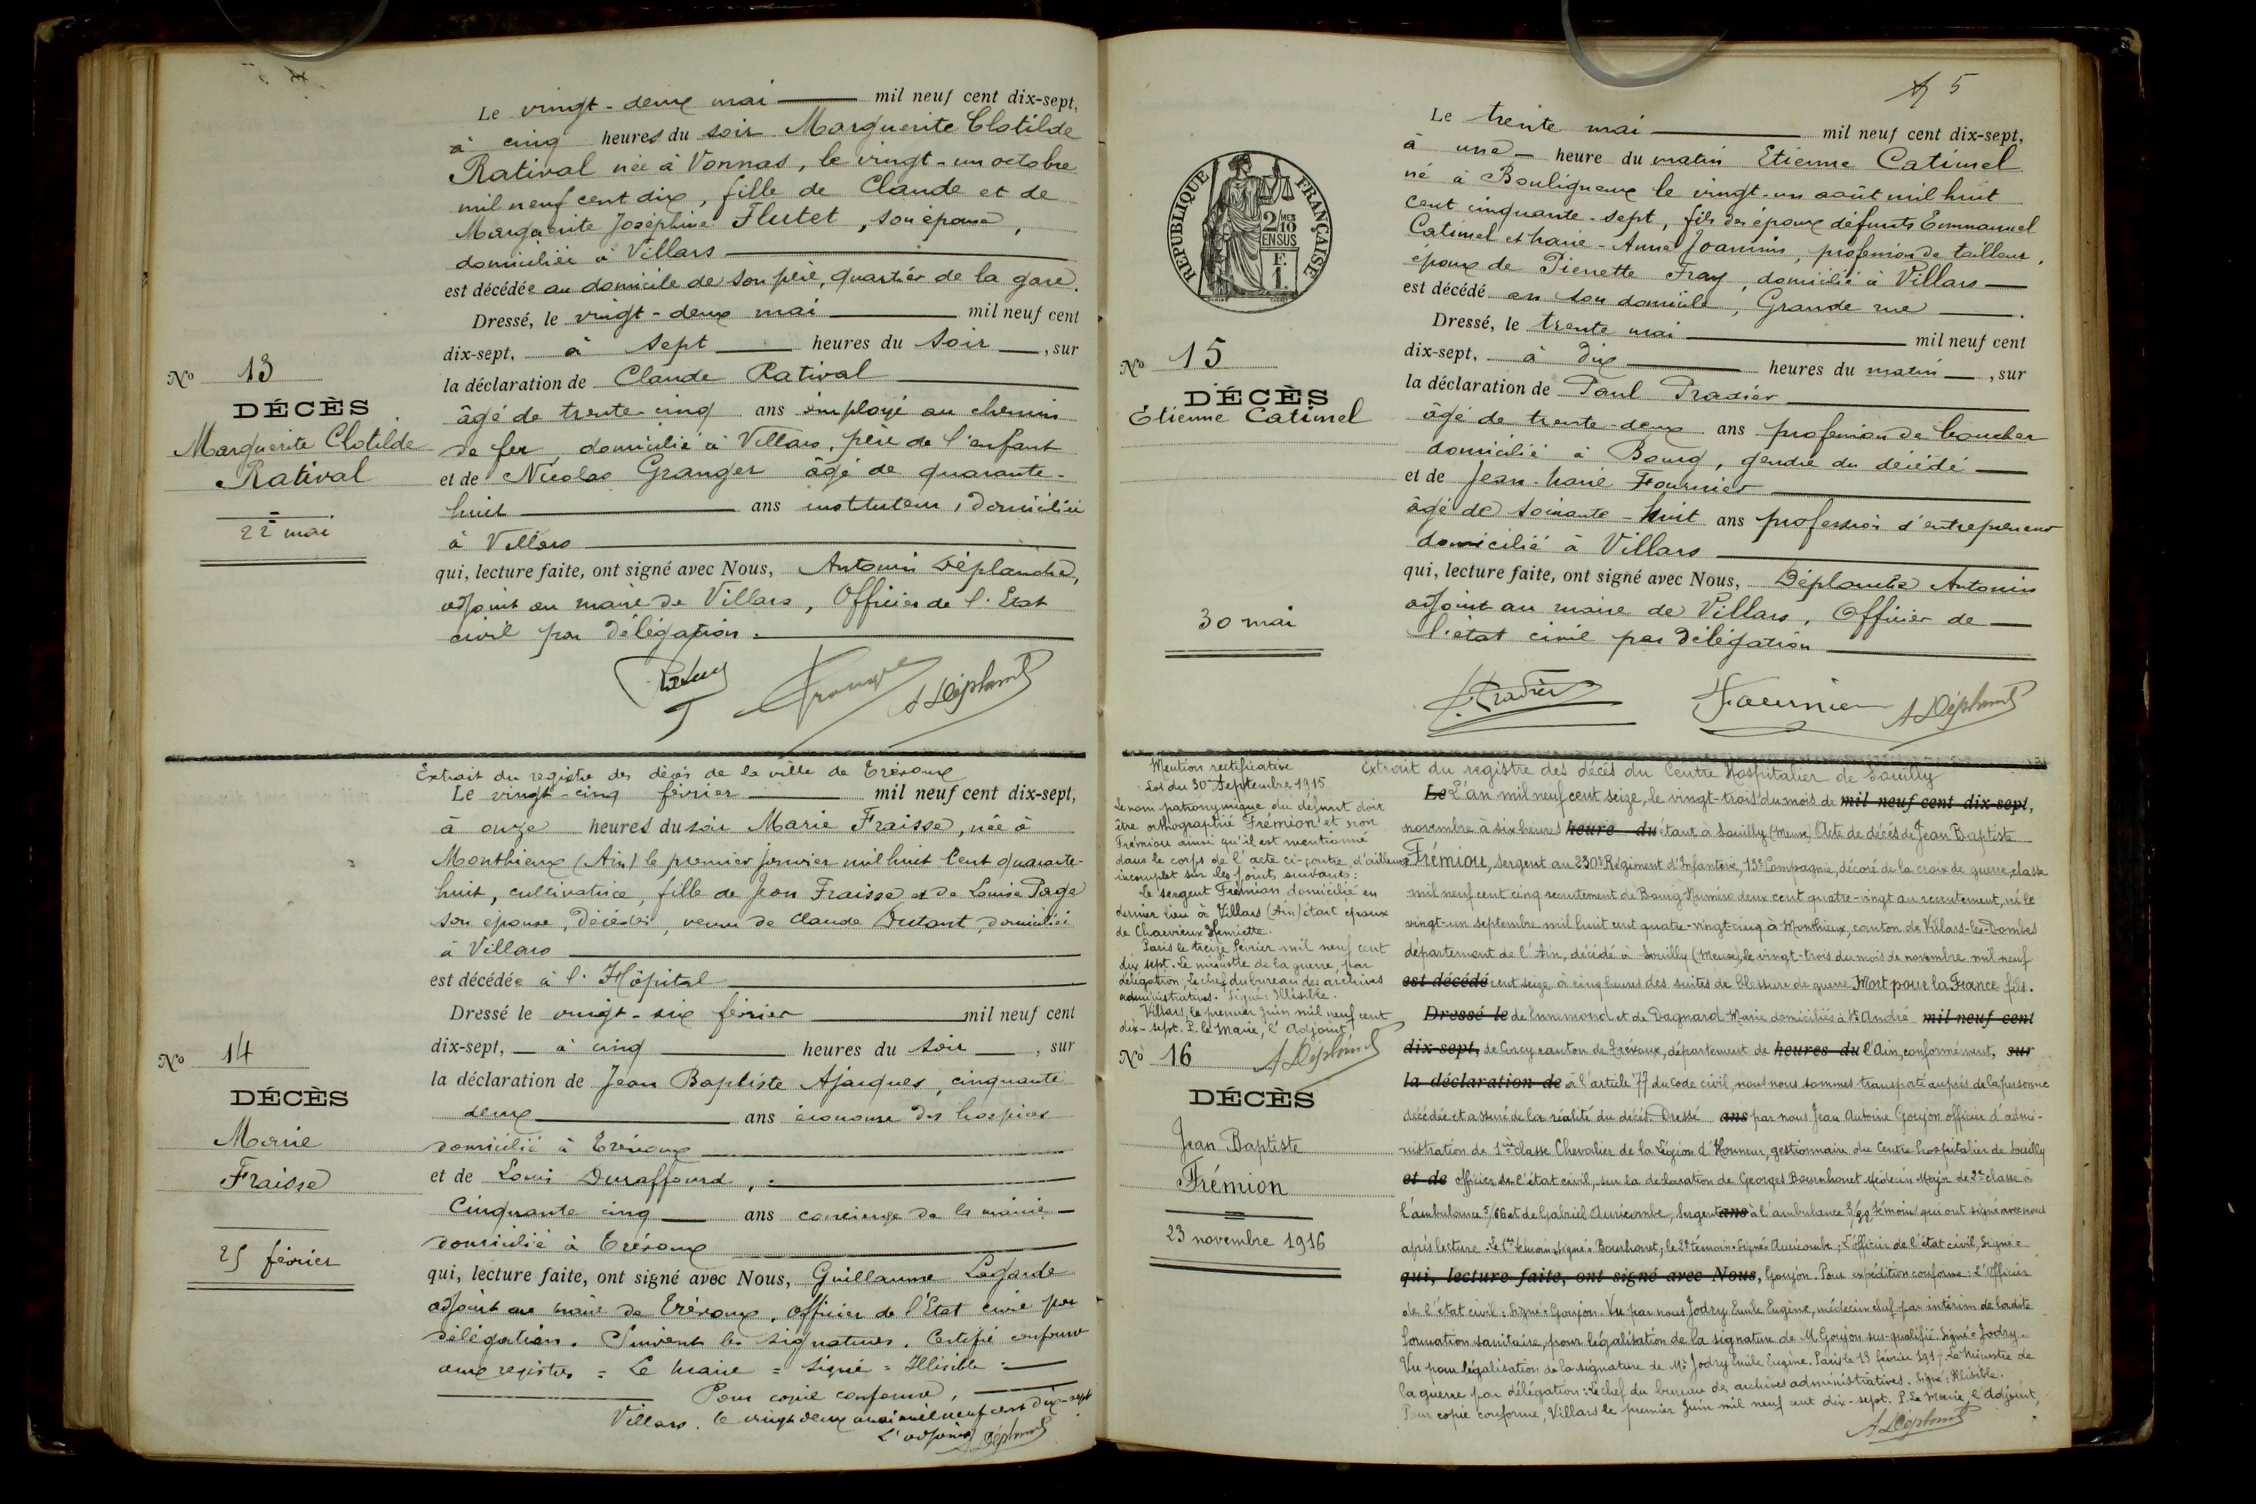 Le vingt-deux mai mil neuf cent dix-sept,
à cinq heures du soir Marguerite Clotilde
Ratival née à Vonnas, le vingt-un octobre
mil neuf cent dix, fille de Claude et de
Marguerite Joséphine Flutet, son épouse,
domiciliée à Villars
est décédée au domicile de son père, quartier de la gare.
Dressé, le vingt-deux mai mil neuf cent
dix-sept, à sept heures du soir, sur
la déclaration de Claude Ratival
âgé de trente-cinq ans employé au chemin
de fer, domicilié à Villars, père de l'enfant
et de Nicolas Granger âgé de quarante-
huit ans instituteur, domicilié
à Villars
qui, lecture faite, ont signé avec Nous, Antonin Déplanche,
adjoint au maire de Villars, Officier de l'Etat
civil par délégation.
No 13
DÉCÈS
Marguerite Clotilde
Ratival
22 mai
A Déplanche
Extrait du registre des décès de la ville de Trévoux
Le vingt-cinq février mil neuf cent dix-sept,
à onze heures du soir Marie Fraisse, née à
Monthieux (Ain) le premier janvier mil huit cent quarante-
huit, cultivatrice, fille de Jean Fraisse et de Louise Page
son épouse, décédés, veuve de Claude Dutant, domiciliée
à Villars
est décédée à l'Hôpital
Dressé le vingt-six février mil neuf cent
dix-sept, à cinq heures du soir, sur
la déclaration de Jean Baptiste Ajarques, cinquante
deux ans économe des hospices
domicilié à Trévoux
et de Louis Duraffourd,
Cinquante cinq ans concierge de la mairie
domicilié à Trévoux
qui, lecture faite, ont signé avec Nous, Guillaume Lagarde
adjoint au maire de Trévoux, officier de l'Etat civil par
délégation. Suivent les signatures. Certifié conforme
aux registres = Le Maire = Signé = Illisible =
Pour copie conforme,
Villars, le vingt deux mai mil neuf cent dix-sept
L'adjoint A Déplanche
No 14
DÉCÈS
Marie
Fraisse
25 février
5
RÉPUBLIQUE FRANÇAISE
2/10 MES
EN SUS
F.
1.
Le trente mai mil neuf cent dix-sept,
à une heure du matin Etienne Catimel
né à Bouligneux le vingt-un août mil huit
cent cinquante-sept, fils des époux défunts Emmanuel
Catimel et Marie-Anne Joannin, profession de tailleur,
époux de Pierrette Fray, domicilié à Villars
est décédé en son domicile, Grande rue
Dressé, le trente mai mil neuf cent
dix-sept, à dix heures du matin, sur
la déclaration de Paul Pradier
âgé de trente-deux ans profession de boucher
domicilié à Bourg, gendre du décédé
et de Jean-Marie Fournier
âgé de soixante-huit ans profession d'entrepreneur
domicilié à Villars
qui, lecture faite, ont signé avec Nous, Déplanche Antonin
adjoint au maire de Villars, Officier de
l'état civil par délégation
No 15
DÉCÈS
Etienne Catimel
30 mai
Pradier Fournier A Déplanche
Mention rectificative
Loi du 30 Septembre 1915
Le nom patronymique du défunt doit
être orthographié Frémion et non
Frémiou ainsi qu'il est mentionné
dans le corps de l'acte ci-contre, d'ailleurs
incomplet sur les points suivants:
Le sergent Frémion domicilié en
dernier lieu à Villars (Ain) était époux
de Charvieux Henriette.
Paris le treize février mil neuf cent
dix sept. Le ministre de la guerre, par
délégation, le chef du bureau des archives
administratives. Signé: Illisible.
Villars, le premier juin mil neuf cent
dix-sept. P. le Maire, l'Adjoint,
A Déplanche
No 16
DÉCÈS
Jean Baptiste
Frémion
23 novembre 1916
Extrait du registre des décès du Centre Hospitalier de Souilly
Le L'an mil neuf cent seize, le vingt-trois du mois de mil neuf cent dix-sept,
novembre à six heures heure du étant à Souilly (Meuse) Acte de décès de Jean Baptiste
Frémiou, sergent au 230e Régiment d'Infanterie, 19e Compagnie, décoré de la croix de guerre, classe
mil neuf cent cinq recrutement de Bourg Numéro deux cent quatre-vingt au recrutement, né le
vingt-un septembre mil huit cent quatre-vingt-cinq à Monthieux, canton de Villars-les-Dombes
département de l'Ain, décédé à Souilly (Meuse), le vingt-trois du mois de novembre mil neuf
est décédé cent seize à cinq heures des suites de blessure de guerre Mort pour la France fils.
Dressé le de Ennemond et de Dagnard Marie domiciliés à St André mil neuf cent
dix-sept, de Corcy canton de Trévoux, département de heures du l'Ain, conformément, sur
la déclaration de à l'article 77 du code civil, nous nous sommes transporté auprès de la personne
décédée et assuré de la réalité du décès. Dressé ans par nous Jean Antoine Goujon officier d'admi-
nistration de 1ère classe Chevalier de la Légion d'Honneur, gestionnaire du Centre hospitalier de Souilly
et de officier de l'état civil, sur la déclaration de Georges Bournhonet Médecin Major de 2e classe à
l'ambulance 5/66 et de Gabriel Auricombe, Sergent ans à l'ambulance témoins qui ont signé avec nous
après lecture. Le 1er témoin signé: Bournhonet; le 2e témoin Signé: Auricombe; L'officier de l'état civil, Signé=
qui, lecture faite, ont signé avec Nous, Goujon. Pour expédition conforme: L'Officier
de l'état civil: Signé=Goujon. Vu par nous Jodry Emile Eugène, médecin chef par intérim de ladite
formation sanitaire, pour légalisation de la signature de M. Goujon sus-qualifié. Signé= Jodry.
Vu pour légalisation de la signature de Mr Jodry Emile Eugène. Paris le 13 février 1917. Le Ministre de
la guerre par délégation: Le chef du bureau des archives administratives. Signé: Illisible.
Pour copie conforme, Villars le premier Juin mil neuf cent dix-sept. P. Le Maire, l'Adjoint,
A Déplanche